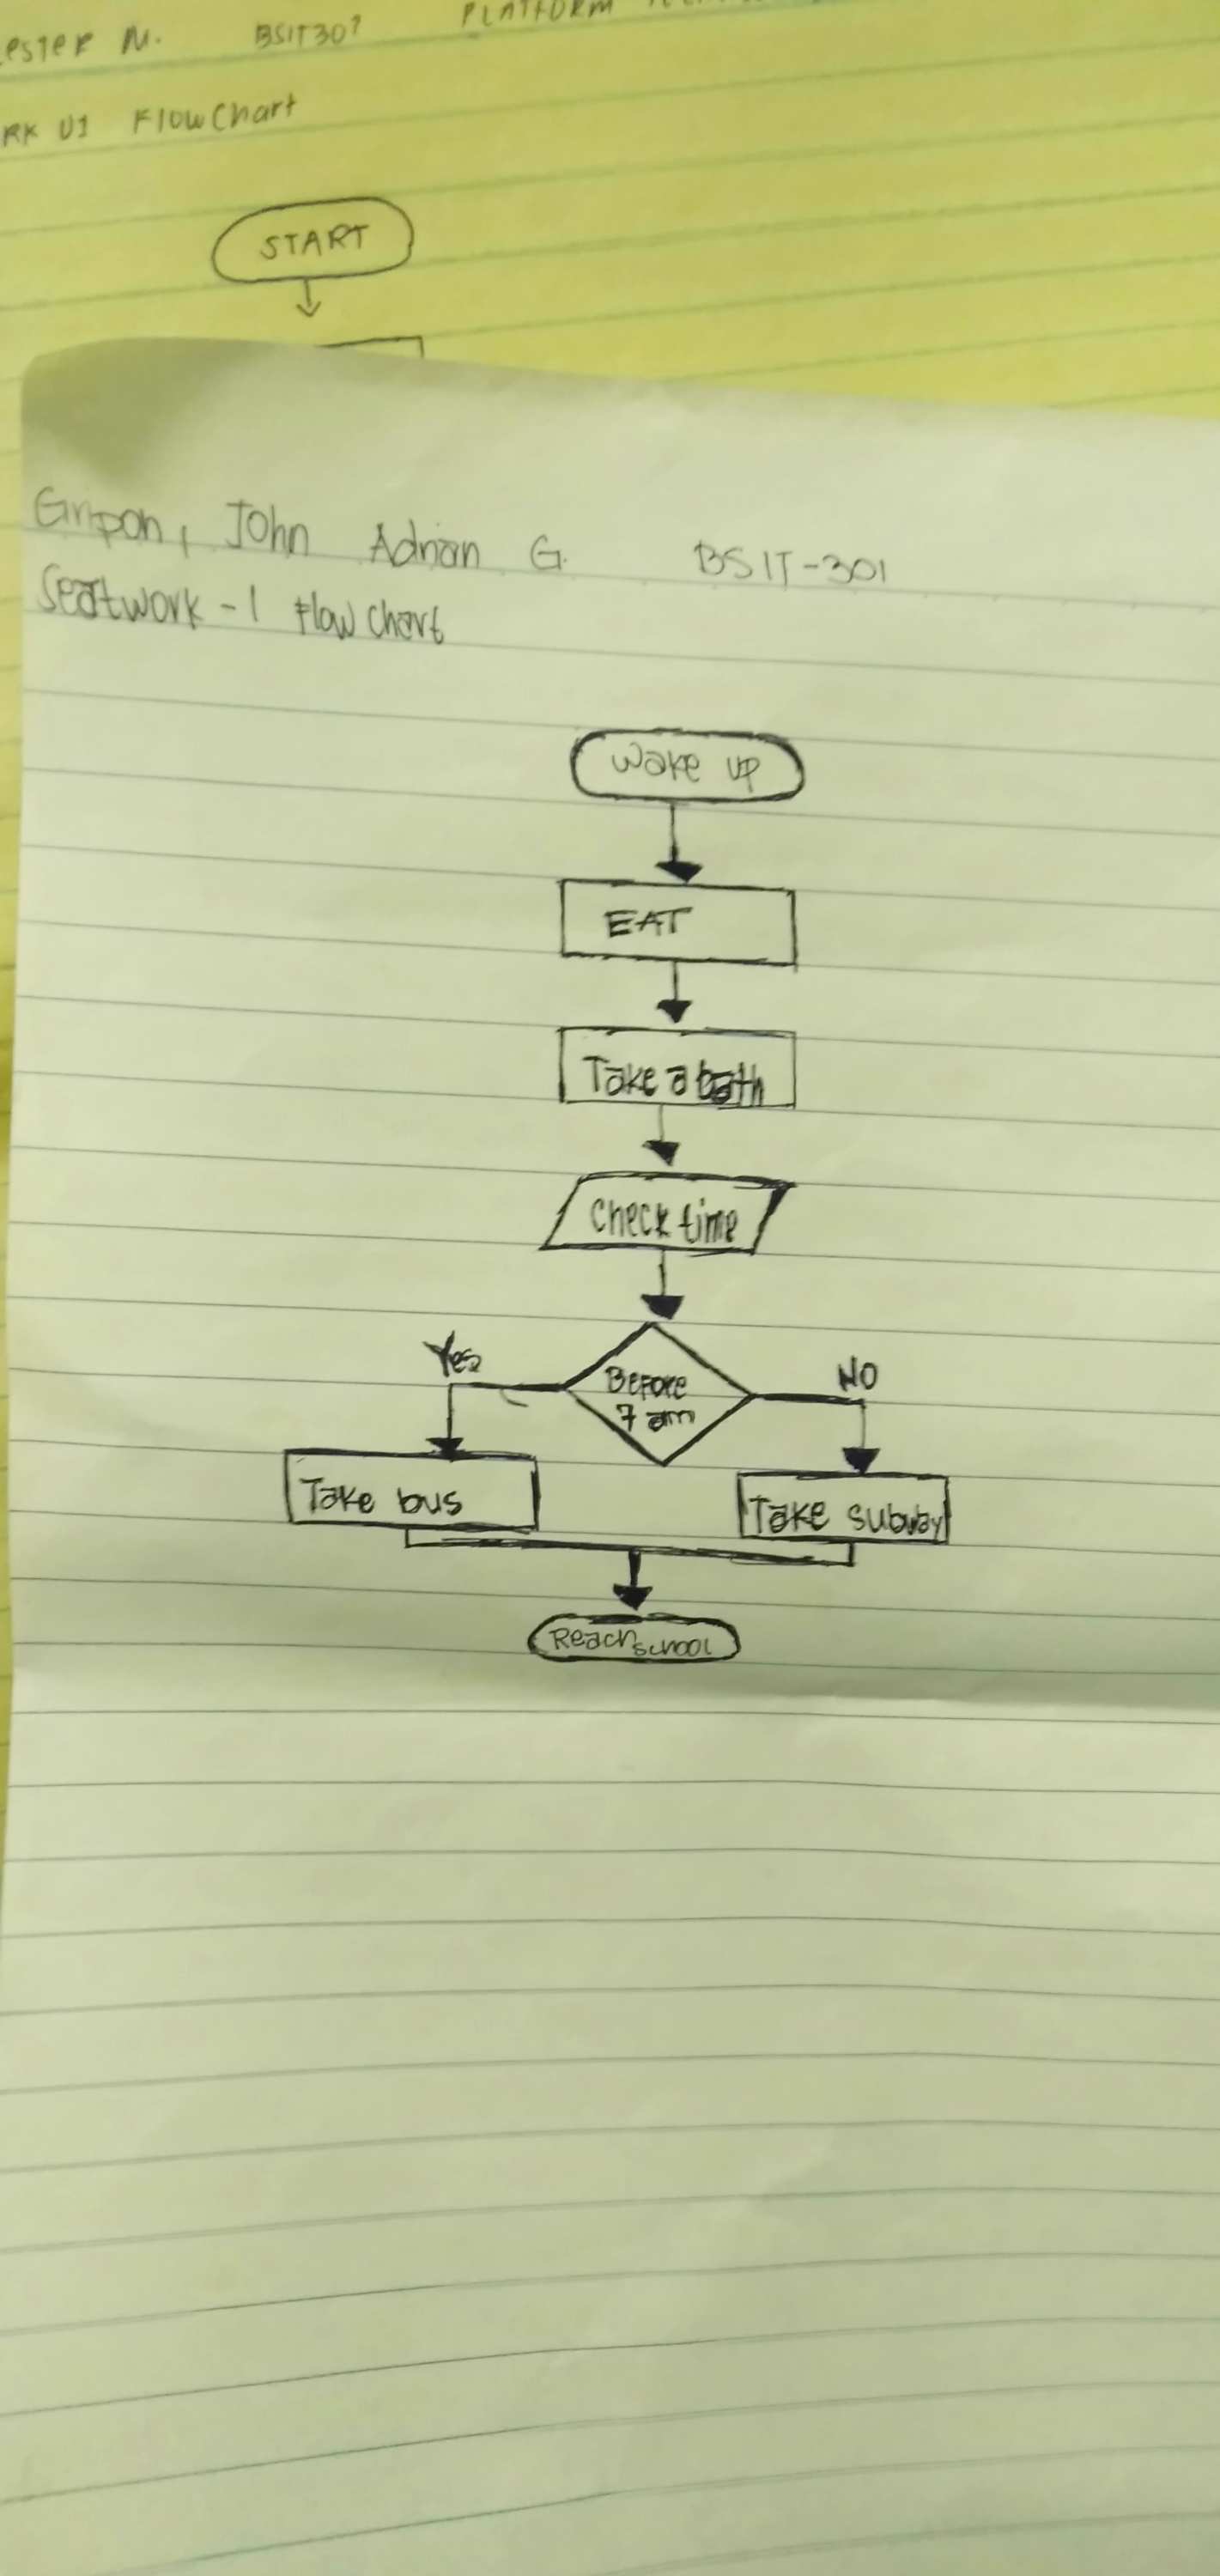 BSIT30?
FlowChart
START
John Adrian G. BSIT-301
Seatwork - 1 flow chart
Wake up
EAT
Take a bath
Check time
Before
7 am
Yes
NO
Take bus
Take subway
Reach school